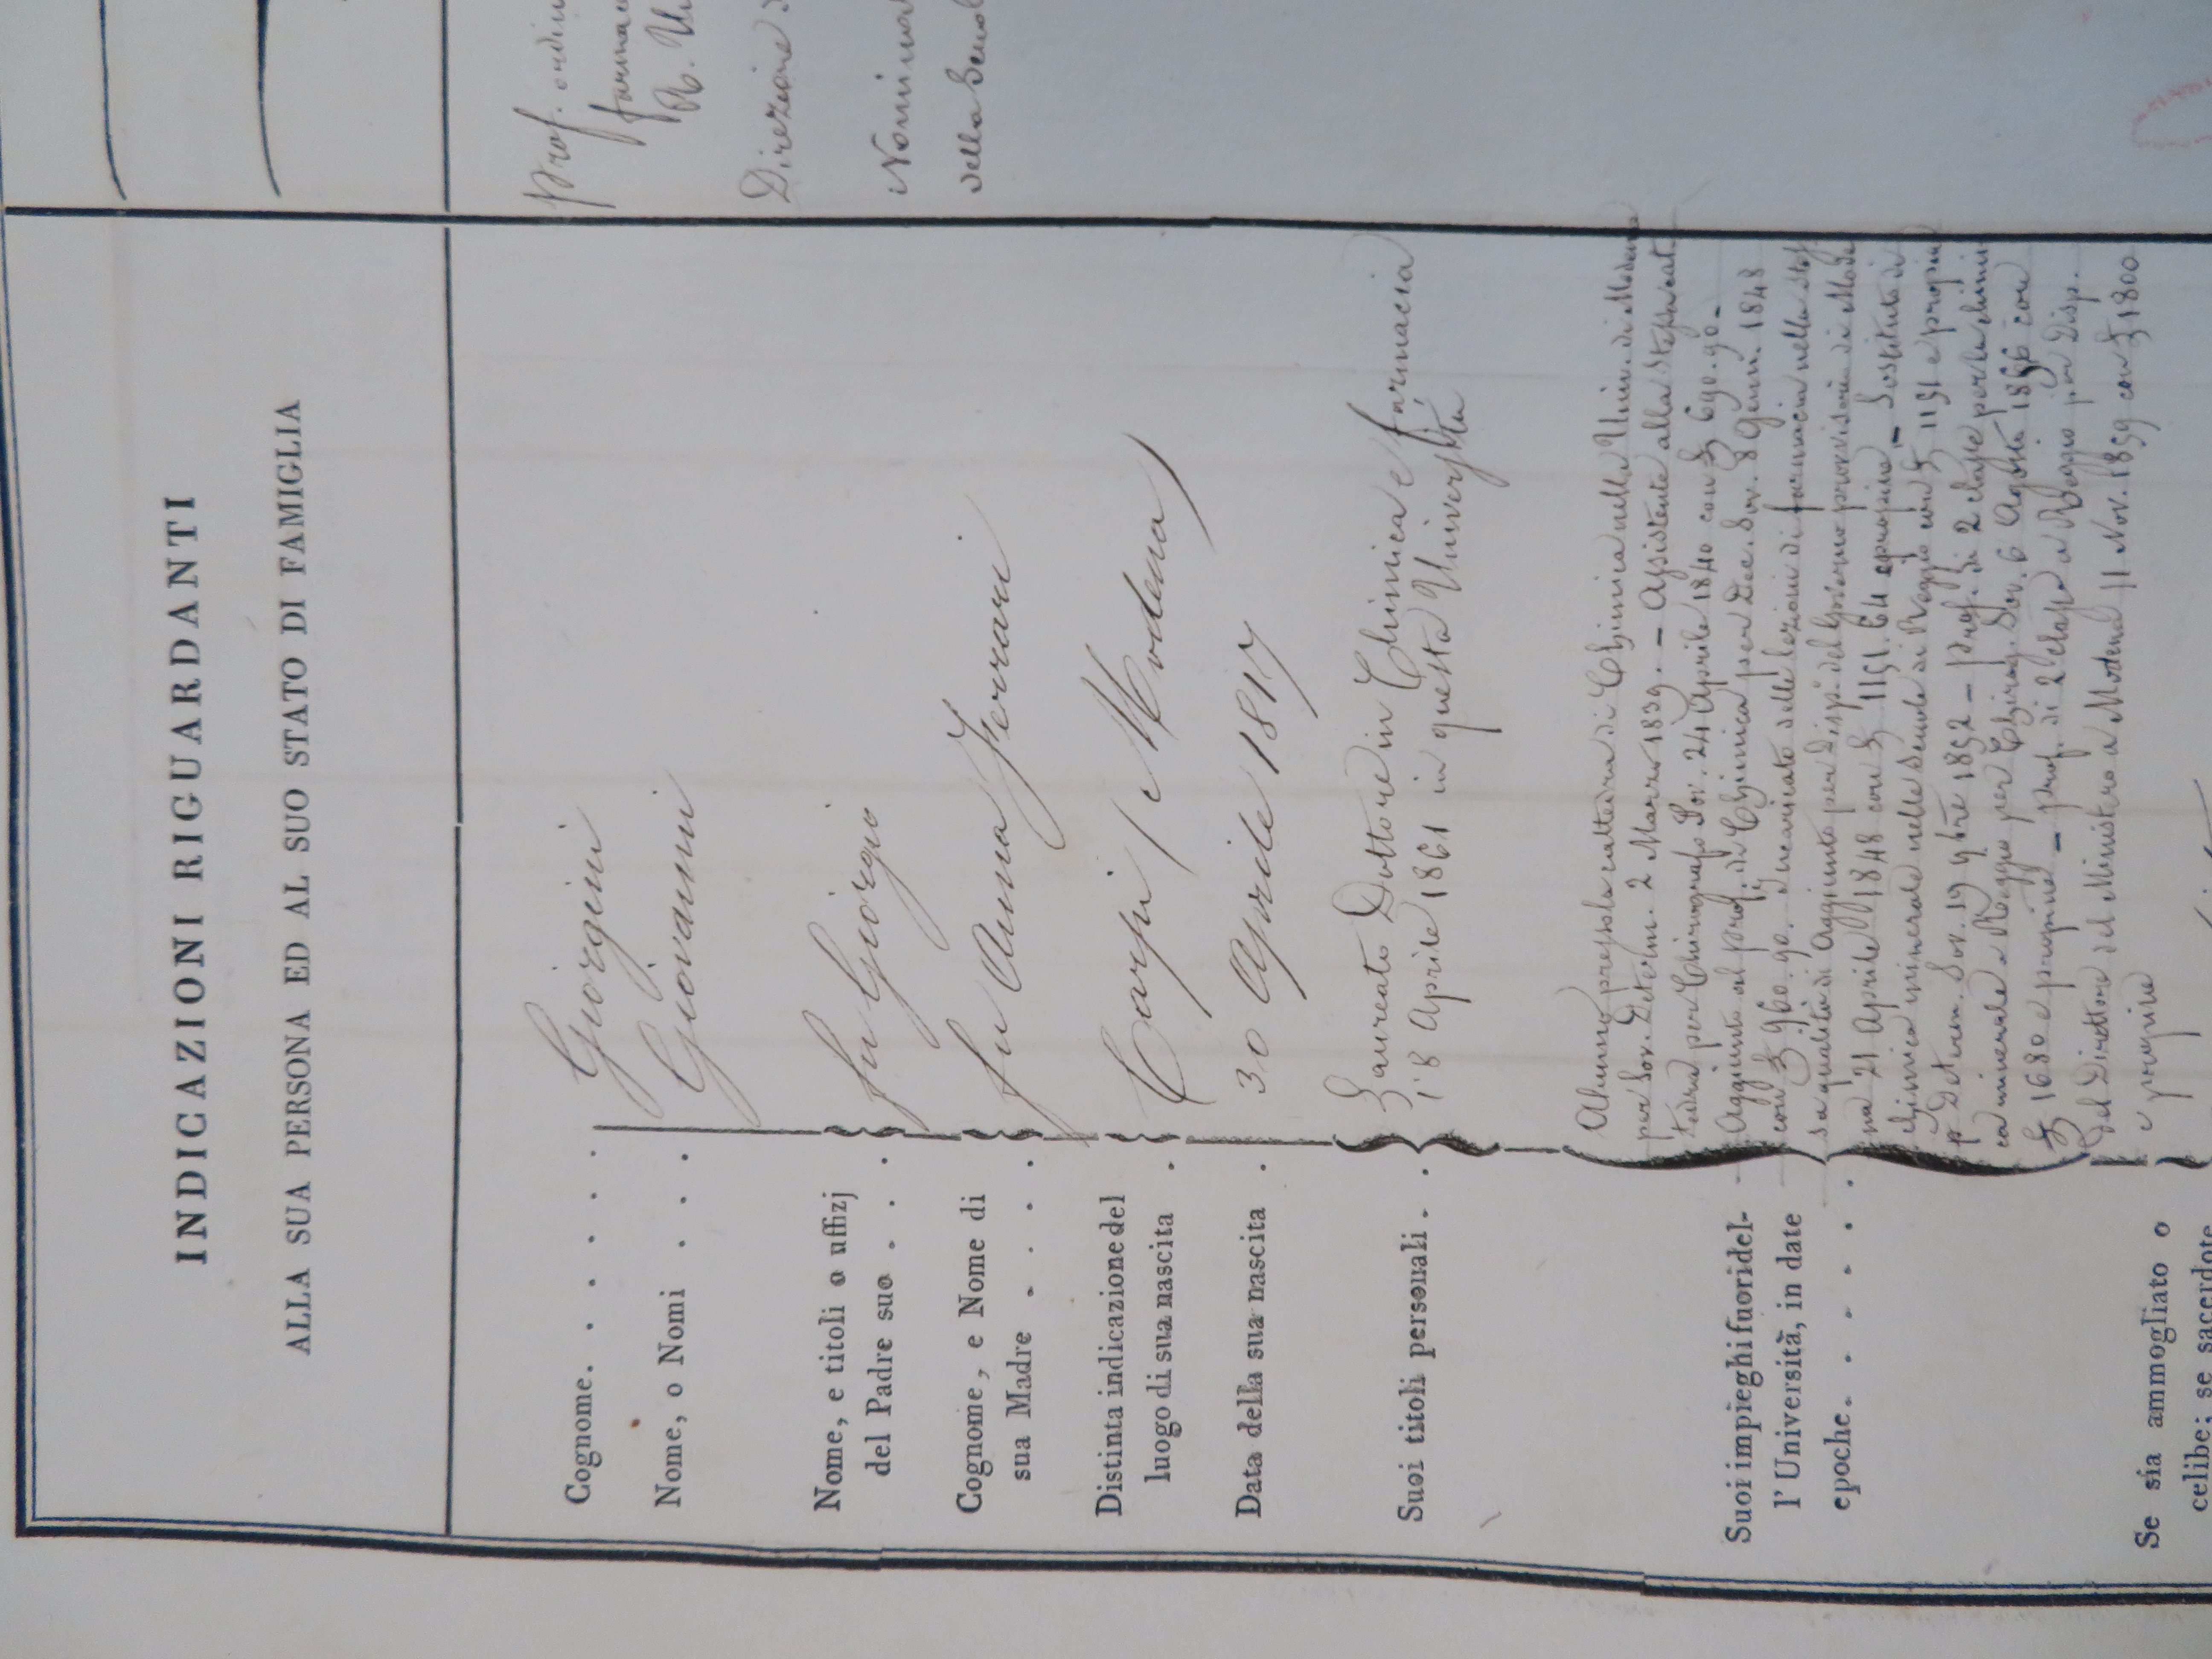 INDICAZIONI RIGUARDANTI
ALLA SUA PERSONA ED AL SUO STATO DI FAMIGLIA
Cognome. . . . . . Giorgini
Nome, o Nomi . . . Giovanni
Nome, e titoli o uffizj
del Padre suo . . . fu Giorgio
Cognome, e Nome di
sua Madre . . . . fu Anna Ferrari
Distinta indicazione del
luogo di sua nascita . Carpi (Modena)
Data della sua nascita . 30 Aprile 1817
Suoi titoli personali. .
Laureato Dottore in Chimica e farmacia
18 Aprile 1861 in questa Università
Suoi impieghi fuori del-
l'Università, in date
epoche. . . . . . .
Alunno presso la cattedra di Chimica nella Univ. di Modena
per Sov. Determ. 2 Marzo 1839. – Assistente alla stessa cat
tedra per Chirografo Sov. 24 Aprile 1840 con £ 690.90 –
Aggiunto al prof. di Chimica per Dec. Sov. 8 Genn. 1848
con £ 960.90. Incaricato delle lezioni di farmacia nella stes
sa qualità di Aggiunto per Disp. del Governo provvisorio di Mode
na 21 Aprile 1848 con £ 1151.64 – Sostituto di
Chimica minerale nelle Scuole di Reggio con £ 1151 e propine
p. Determ. Sov. 19 9bre 1852 – Prof. di 2 classe per la chimi
ca minerale a Reggio per Chirog. Sov. 6 Agosto 1856 con
£ 1680 e propine – prof. di 2 classe a Reggio per Disp.
del Direttore del Ministero a Modena 11 Nov. 1859 con £ 1800
e propine
Se sia ammogliato o
celibe; se sacerdote
Prof. ordin
farmac
R. Un
Direzione
Nomina
della Scuol